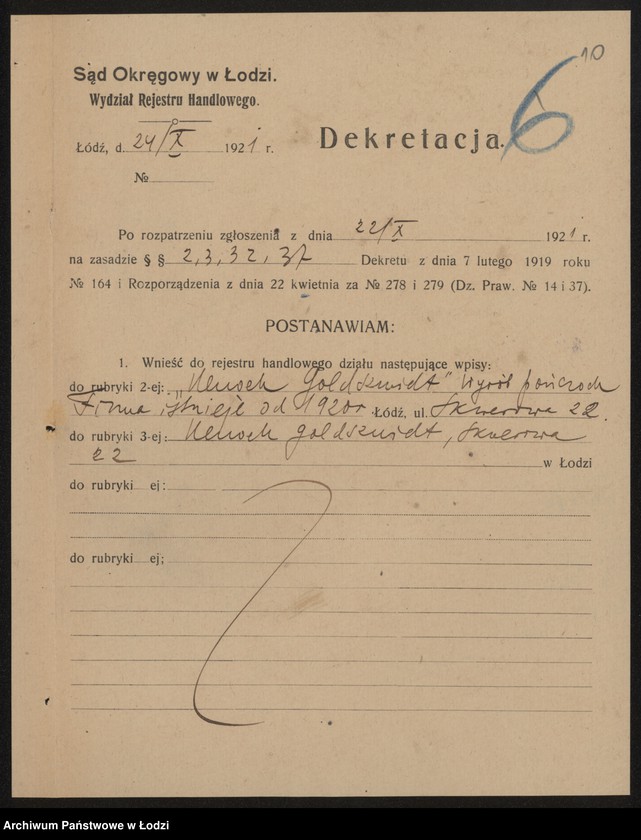 10
6
Sąd Okręgowy w Łodzi.
Wydział Rejestru Handlowego.
Dekretacja.
Łódź, d. 24/X 1921 r.
№
Po rozpatrzeniu zgłoszenia z dnia 22/X 1921 r.
na zasadzie § § 2, 3, 32, 37 Dekretu z dnia 7 lutego 1919 roku
№ 164 i Rozporządzenia z dnia 22 kwietnia za № 278 i 279 (Dz. Praw. № 14 i 37).
POSTANAWIAM:
1. Wnieść do rejestru handlowego działu następujące wpisy:
do rubryki 2-ej: „Henoch Goldszmidt" Wyrób pończoch
Firma istnieje od 1920r Łódź, ul. Skwerowa 22.
do rubryki 3-ej: Henoch Goldszmidt, Skwerowa
22 w Łodzi
do rubryki ej:
do rubryki ej;
Archiwum Państwowe w Łodzi